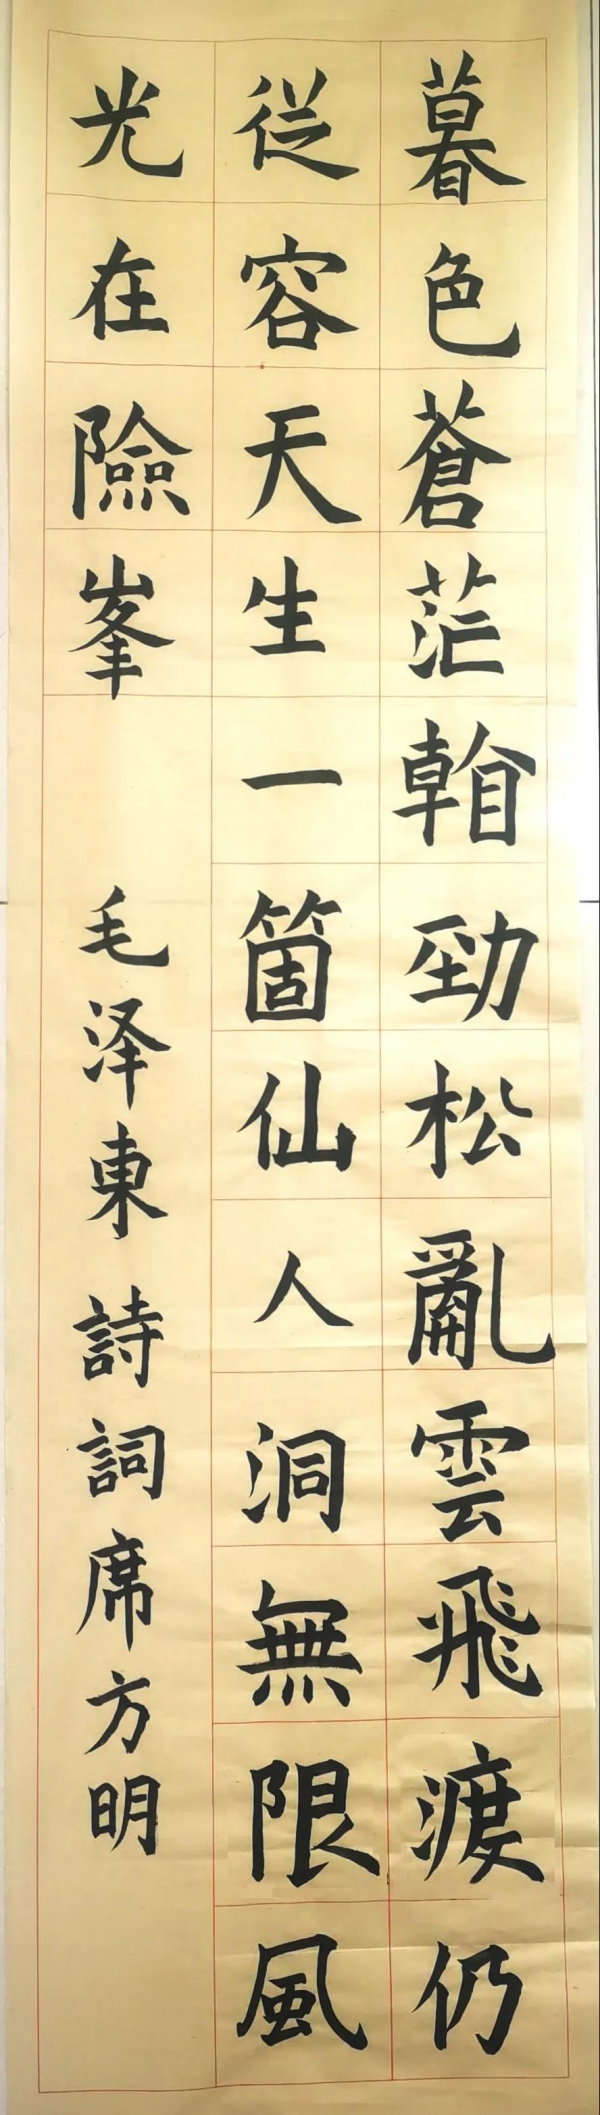 暮色蒼茫看勁松亂雲飛渡仍
從容天生一箇仙人洞無限風
光在險峯
毛泽東詩詞席方明